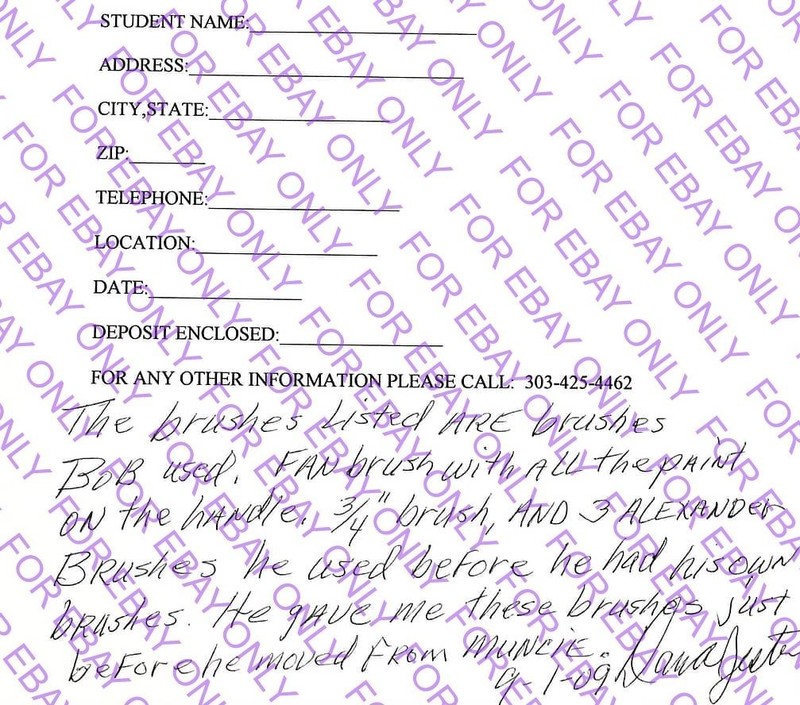 STUDENT NAME:
ADDRESS:
CITY,STATE:
ZIP:
TELEPHONE:
LOCATION:
DATE:
DEPOSIT ENCLOSED:
FOR ANY OTHER INFORMATION PLEASE CALL: 303-425-4462
The brushes Listed ARE brushes
BOB used. FAN brush with ALL the pAint
ON the hANdle. 3/4" brush, AND 3 ALEXANDer
Brushes he used before he had his own
brushes. He gAve me these brushes just
before he moved From MUNCIE.
9-1-09 Dana Jester
FOR EBAY ONLY